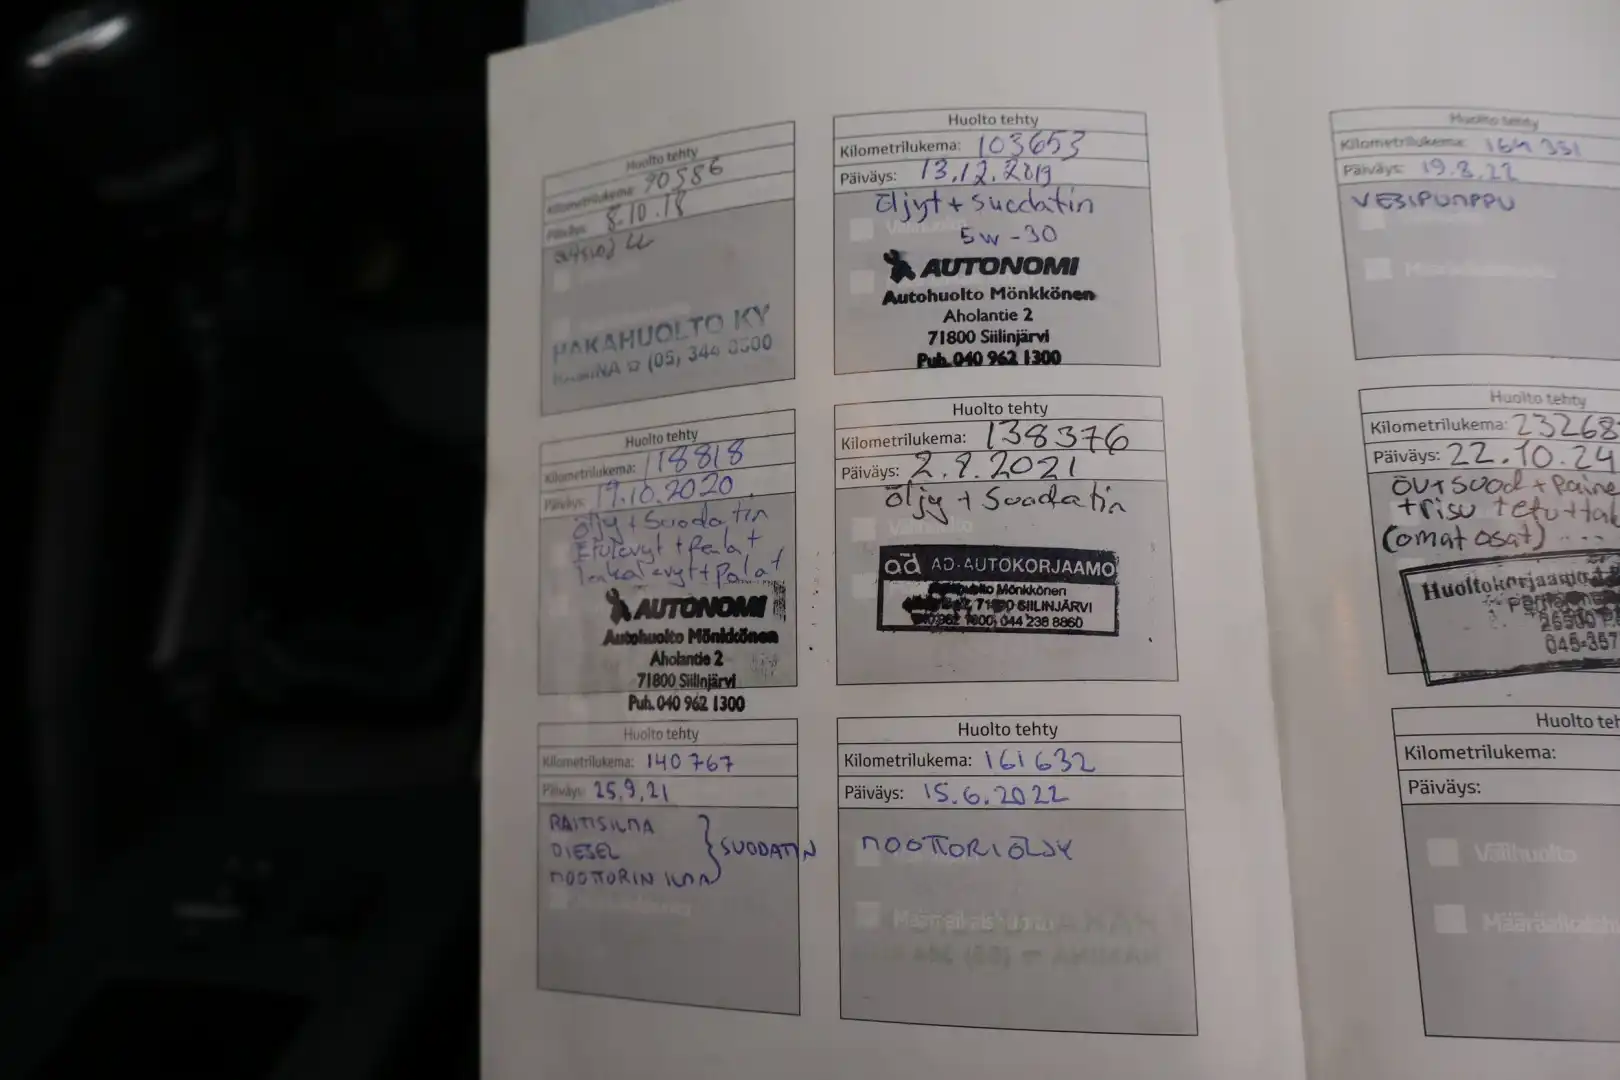 Huolto tehty
Kilometrilukema: 90586
Päiväys: 8.10.18
HAKAHUOLTO KY
(05) 344 0500
Huolto tehty
Kilometrilukema: 103653
Päiväys: 13.12.2019
öljyt + suodatin
5w-30
AUTONOMI
Autohuolto Mönkkönen
Aholantie 2
71800 Siilinjärvi
Puh. 040 962 1300
Huolto tehty
Kilometrilukema: 118818
Päiväys: 19.10.2020
öljy + Suodatin
Etulevyt + Palat
Takalevyt + Palat
AUTONOMI
Autohuolto Mönkkönen
Aholantie 2
71800 Siilinjärvi
Puh. 040 962 1300
Huolto tehty
Kilometrilukema: 138376
Päiväys: 2.9.2021
öljy + Suodatin
Välihuolto
ad AD-AUTOKORJAAMO
Mönkkönen
SIILINJÄRVI
044 238 8860
Huolto tehty
Kilometrilukema: 140767
Päiväys: 25.9.21
RAITISILMA
DIESEL } SUODATIN
MOOTTORIN ILMA
Huolto tehty
Kilometrilukema: 161632
Päiväys: 15.6.2022
MOOTTORIÖLJY
Määräaikaishuolto
Huolto tehty
Kilometrilukema: 164351
Päiväys: 19.8.22
VESIPUMPPU
Huolto tehty
Kilometrilukema: 23268
Päiväys: 22.10.24
(omat osat)
Huoltokorjaamo
045-357
Huolto teh
Kilometrilukema:
Päiväys:
Välihuolto
Määräaikaish